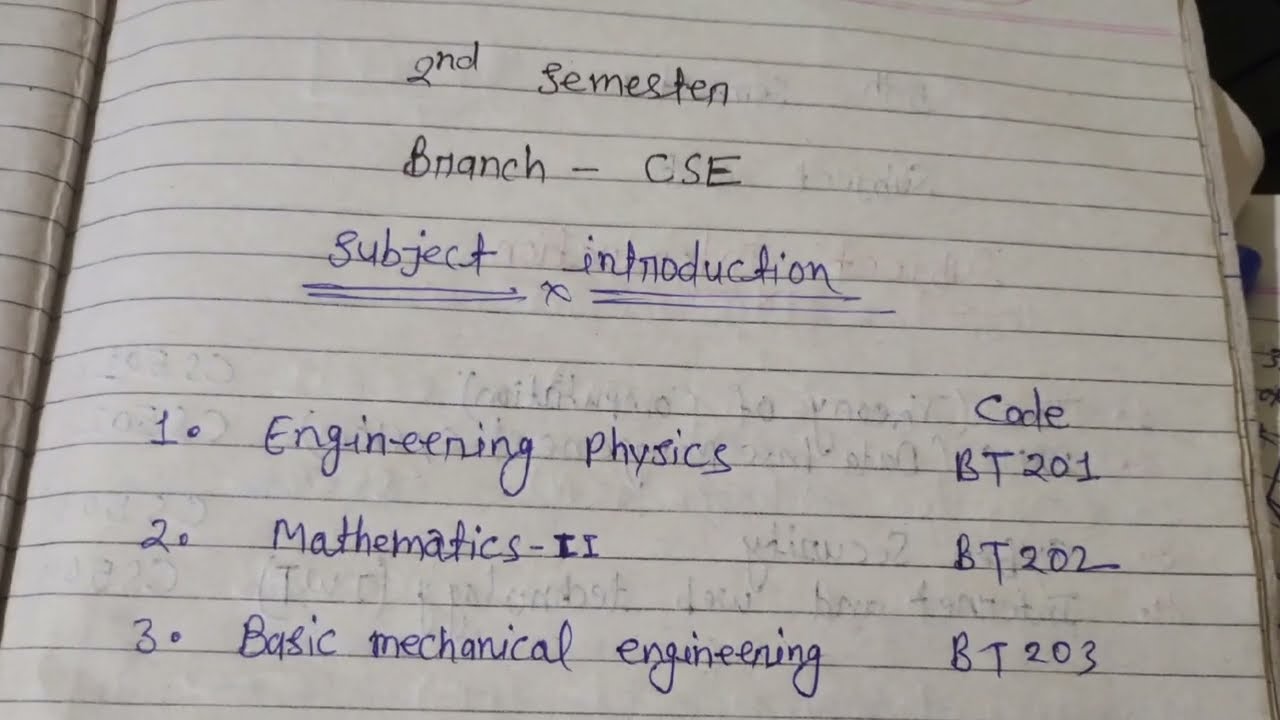 2nd semester
Branch - CSE
Subject introduction
Code
1. Engineering Physics BT201
2. Mathematics-II BT202
3. Basic mechanical engineering BT203